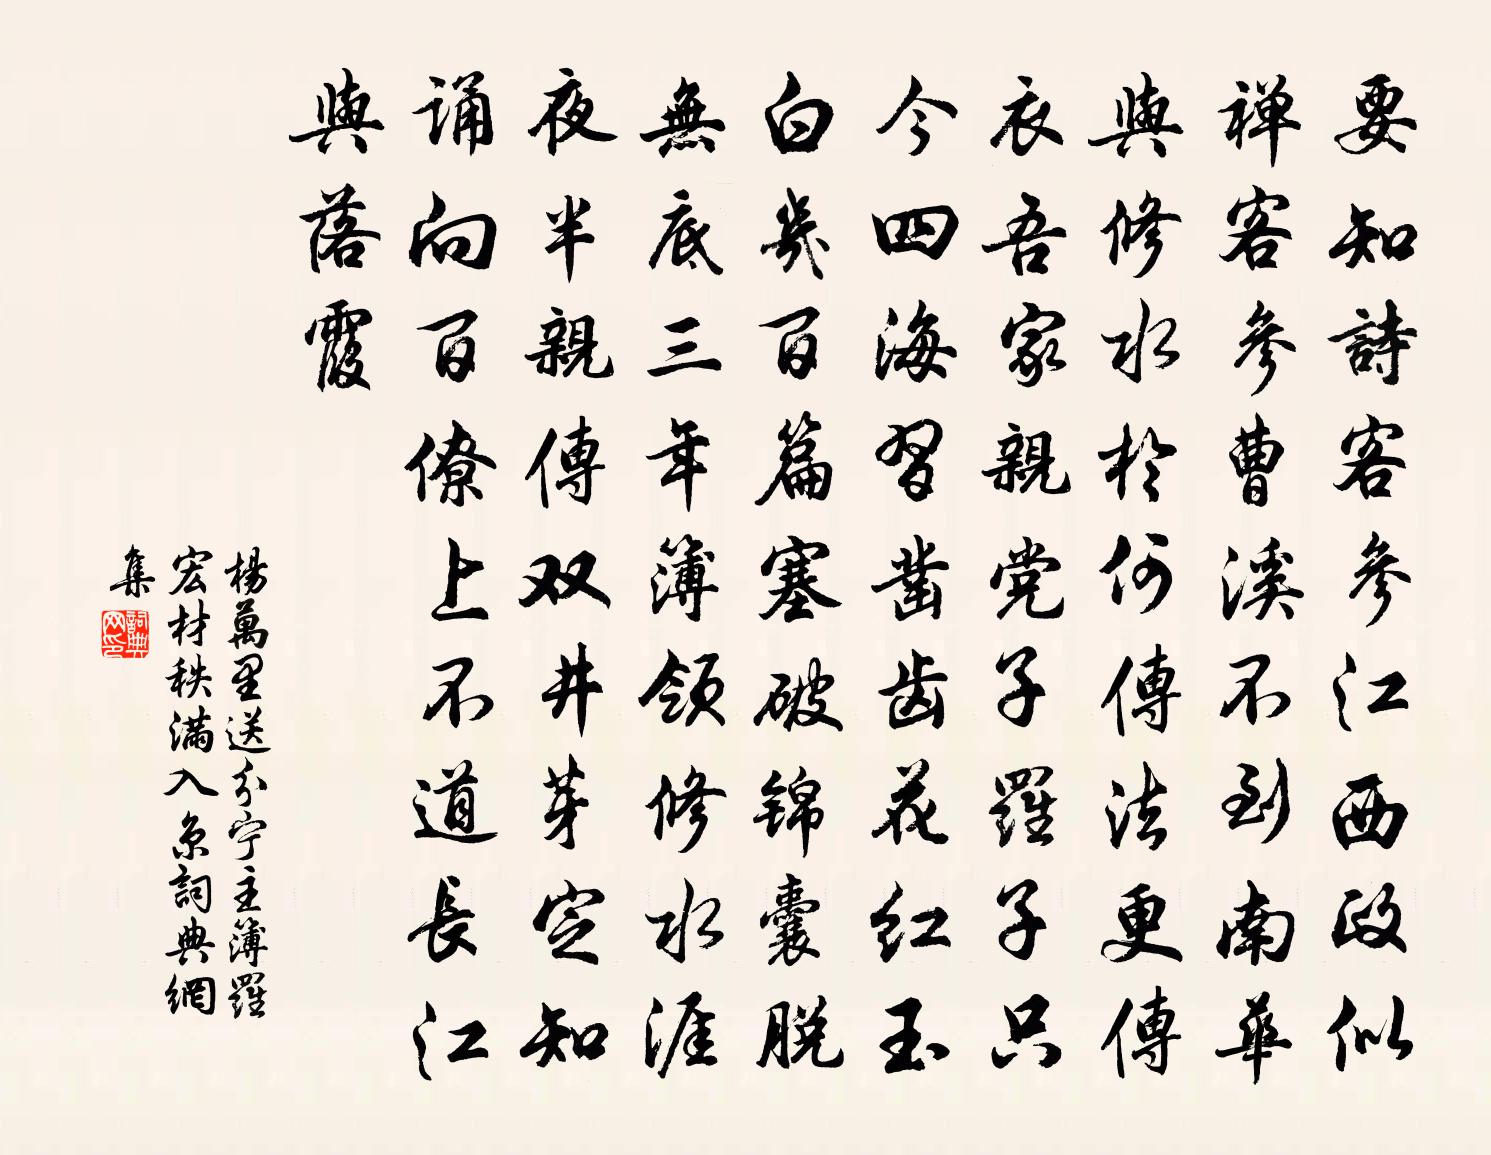 要知詩客參江西政似
禅客參曹溪不到南華
與修水於何傳法更傳
衣吾家親党子羅子只
今四海習凿齿花红玉
白幾百篇塞破锦囊脱
無底三年簿领修水涯
夜半親傳双井芽定知
诵向百僚上不道長江
與落霞
楊萬里送分宁主簿羅
宏材秩滿入京詞典網
集
詞典网印